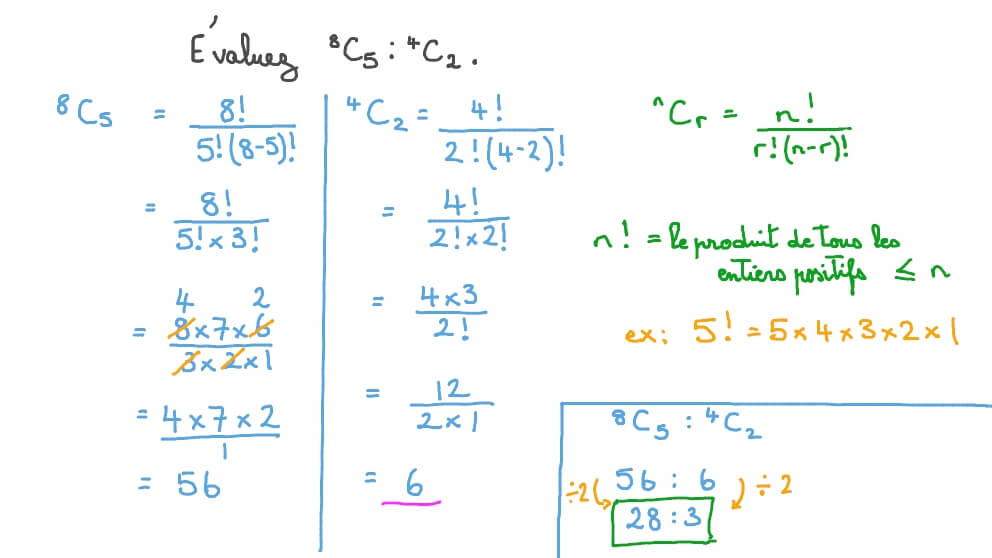 Évaluez ⁸C₅ : ⁴C₂ .
⁸C₅ = 8! / 5!(8-5)!
= 8! / 5! × 3!
4 2
= 8 × 7 × 6 / 3 × 2 × 1
= 4 × 7 × 2 / 1
= 56
⁴C₂ = 4! / 2!(4-2)!
= 4! / 2! × 2!
= 4 × 3 / 2!
= 12 / 2 × 1
= 6
ⁿCᵣ = n! / r!(n-r)!
n! = le produit de tous les
entiers positifs ≤ n
ex: 5! = 5 × 4 × 3 × 2 × 1
⁸C₅ : ⁴C₂
÷2 56 : 6 ÷2
28 : 3